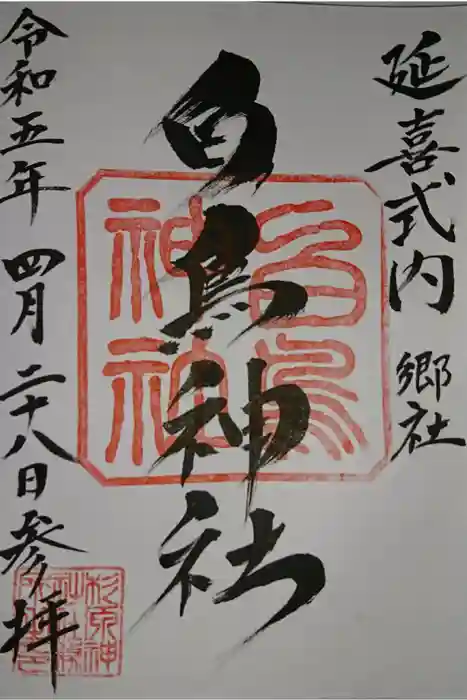 延喜式内 郷社
白鳥神社
白鳥神社
令和五年 四月 二十八日 参拝